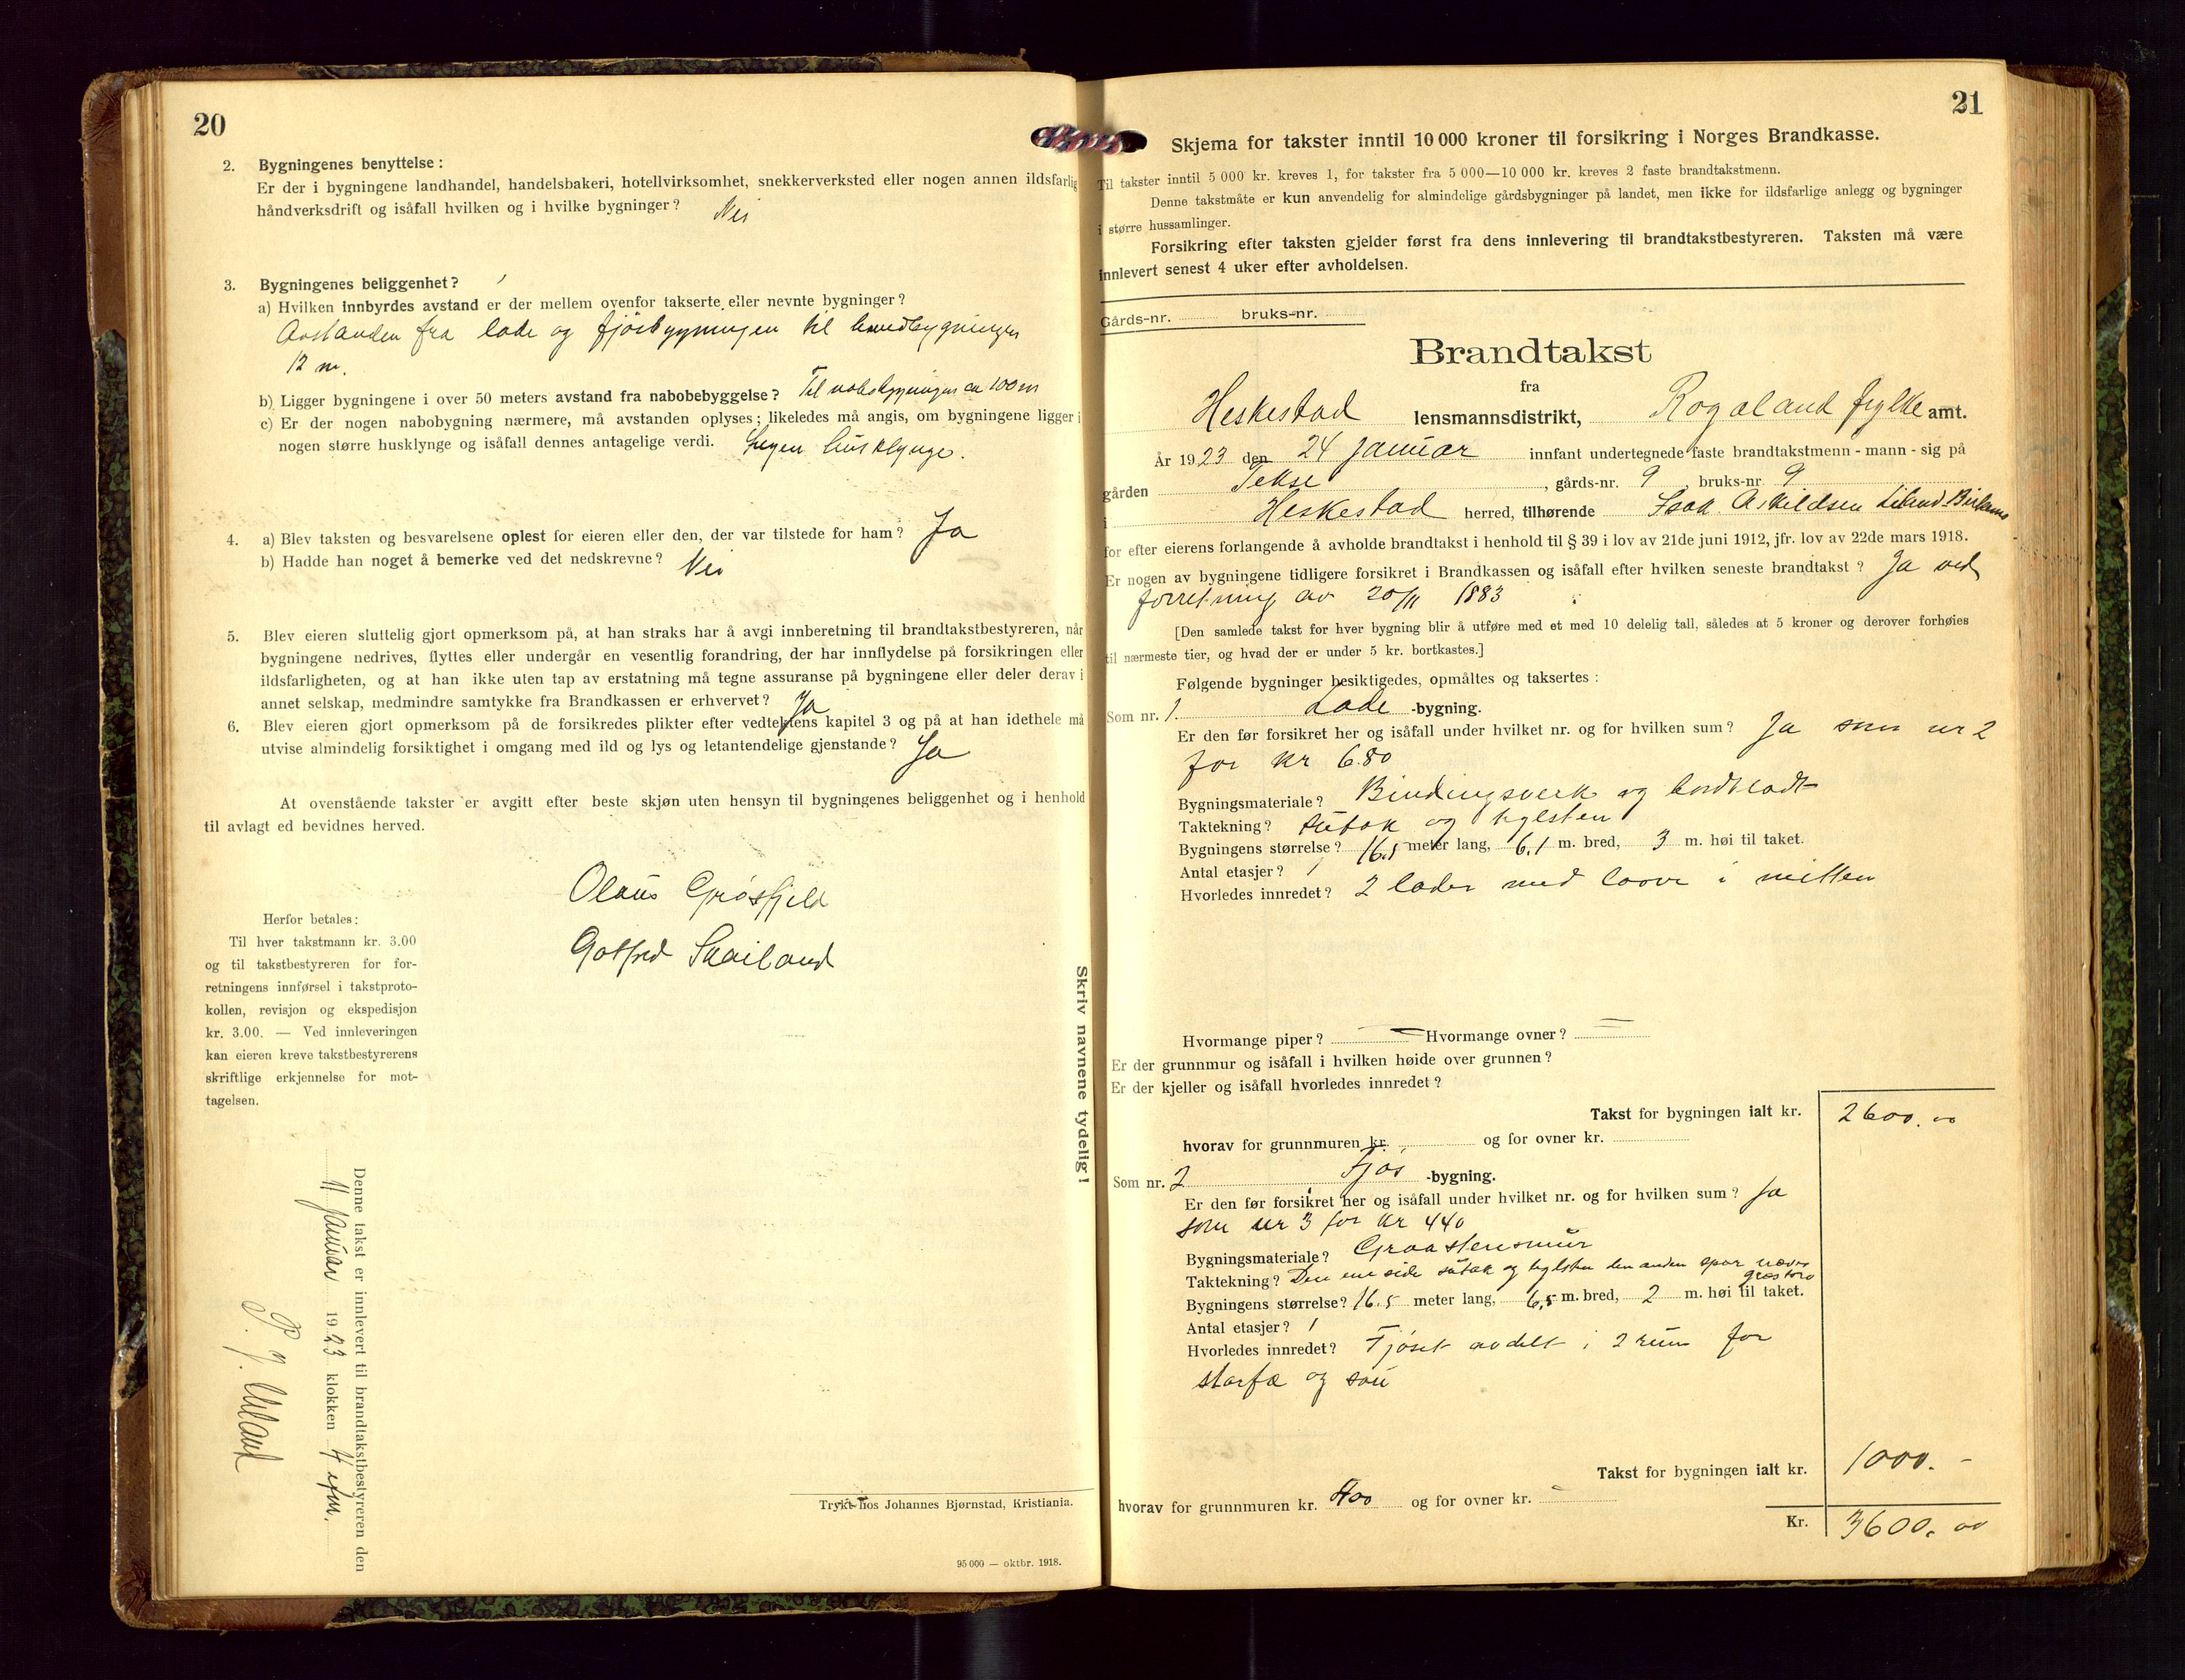 20
2. Bygningenes benyttelse:
Er der i bygningene landhandel, handelsbakeri, hotellvirksomhet, snekkerverksted eller nogen annen ildsfarlig
håndverksdrift og isåfall hvilken og i hvilke bygninger? Nei
3. Bygningenes beliggenhet?
a) Hvilken innbyrdes avstand er der mellem ovenfor takserte eller nevnte bygninger?
Avstanden fra lade og fjösbygningen til hovedbygningen
12 m.
b) Ligger bygningene i over 50 meters avstand fra nabobebyggelse? Til nabobygningen ca 100 m
c) Er der nogen nabobygning nærmere, må avstanden oplyses; likeledes må angis, om bygningene ligger i
nogen større husklynge og isåfall dennes antagelige verdi. Ingen husklynge.
4. a) Blev taksten og besvarelsene oplest for eieren eller den, der var tilstede for ham? Ja
b) Hadde han noget å bemerke ved det nedskrevne? Nei
5. Blev eieren sluttelig gjort opmerksom på, at han straks har å avgi innberetning til brandtakstbestyreren, når
bygningene nedrives, flyttes eller undergår en vesentlig forandring, der har innflydelse på forsikringen eller
ildsfarligheten, og at han ikke uten tap av erstatning må tegne assuranse på bygningene eller deler derav i
annet selskap, medmindre samtykke fra Brandkassen er erhvervet? Ja
6. Blev eieren gjort opmerksom på de forsikredes plikter efter vedtektens kapitel 3 og på at han idethele må
utvise almindelig forsiktighet i omgang med ild og lys og letantendelige gjenstande? Ja
At ovenstående takster er avgitt efter beste skjøn uten hensyn til bygningenes beliggenhet og i henhold
til avlagt ed bevidnes herved.
Olaus Grøsfjeld
Gotfred Skailand
Herfor betales:
Til hver takstmann kr. 3.00
og til takstbestyreren for for-
retningens innførsel i takstproto-
kollen, revisjon og ekspedisjon
kr. 3.00. — Ved innleveringen
kan eieren kreve takstbestyrerens
skriftlige erkjennelse for mot-
tagelsen.
Denne takst er innlevert til brandtakstbestyreren den
11 januar 1923 klokken 4 efm.
Skriv navnene tydelig!
Trykt hos Johannes Bjørnstad, Kristiania.
95 000 — oktbr. 1918.
21
Skjema for takster inntil 10 000 kroner til forsikring i Norges Brandkasse.
Til takster inntil 5 000 kr. kreves 1, for takster fra 5 000—10 000 kr. kreves 2 faste brandtakstmenn.
Denne takstmåte er kun anvendelig for almindelige gårdsbygninger på landet, men ikke for ildsfarlige anlegg og bygninger
i større hussamlinger.
Forsikring efter taksten gjelder først fra dens innlevering til brandtakstbestyreren. Taksten må være
innlevert senest 4 uker efter avholdelsen.
Gårds-nr. bruks-nr.
Brandtakst
fra
Heskestad lensmannsdistrikt, Rogaland fylke amt.
År 1923 den 24 januar innfant undertegnede faste brandtakstmenn - mann - sig på
gården Tekse, gårds-nr. 9, bruks-nr. 9
i Heskestad herred, tilhørende Isak Askildsen
for efter eierens forlangende å avholde brandtakst i henhold til § 39 i lov av 21de juni 1912, jfr. lov av 22de mars 1918.
Er nogen av bygningene tidligere forsikret i Brandkassen og isåfall efter hvilken seneste brandtakst? Ja ved
forretning av 20/11 1883
[Den samlede takst for hver bygning blir å utføre med et med 10 delelig tall, således at 5 kroner og derover forhøies
til nærmeste tier, og hvad der er under 5 kr. bortkastes.]
Følgende bygninger besiktigedes, opmåltes og taksertes:
Som nr. 1. Lade -bygning.
Er den før forsikret her og isåfall under hvilket nr. og for hvilken sum? Ja som nr 2
for kr 680
Bygningsmateriale? Bindingsverk og bordklædt
Taktekning? sutak og tyglsten
Bygningens størrelse? 16.5 meter lang, 6.1 m. bred, 3 m. høi til taket.
Antal etasjer? 1
Hvorledes innredet? 2 lader med loove i mitten
Hvormange piper? — Hvormange ovner? —
Er der grunnmur og isåfall i hvilken høide over grunnen?
Er der kjeller og isåfall hvorledes innredet?
Takst for bygningen ialt kr. 2600.00
hvorav for grunnmuren kr. og for ovner kr.
Som nr. 2 Fjøs -bygning.
Er den før forsikret her og isåfall under hvilket nr. og for hvilken sum? Ja
som nr 3 for kr 440
Bygningsmateriale? Graastensmur
Taktekning? Den ene side sutak og tyglsten den anden spor næver
græstorv
Bygningens størrelse? 16.5 meter lang, 6,5 m. bred, 2 m. høi til taket.
Antal etasjer? 1
Hvorledes innredet? Fjøset avdelt i 2 rum for
storfæ og sau
Takst for bygningen ialt kr. 1000.-
hvorav for grunnmuren kr. 400 og for ovner kr. —
Kr. 3600.00